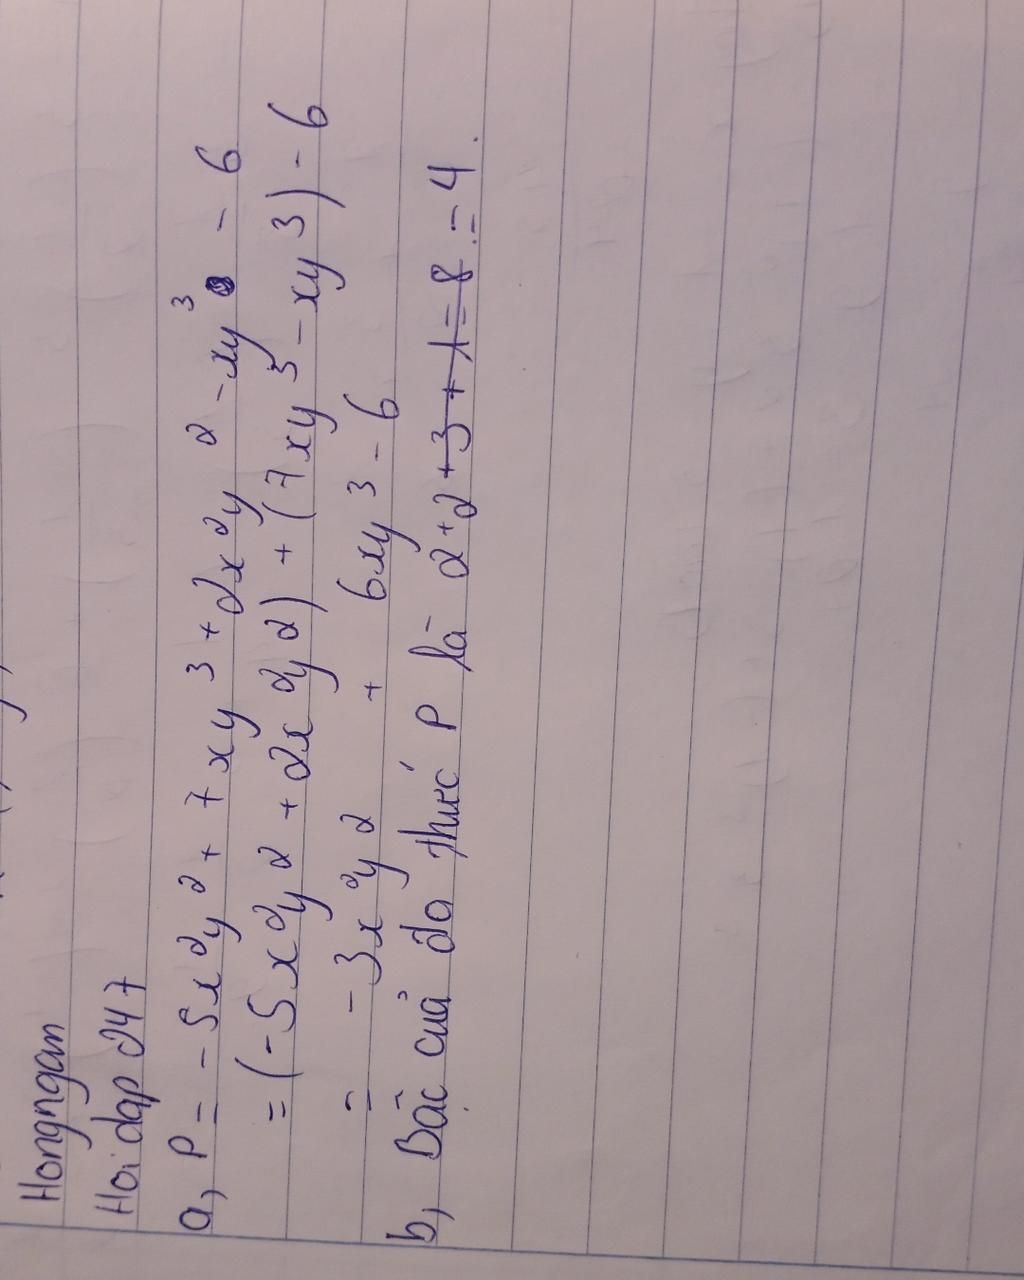 Hongngan
Hoi dap 247
a, P = - 5x²y² + 7xy³ + 2x²y² - xy³ - 6
= (-5x²y² + 2x²y²) + (7xy³ - xy³) - 6
= -3x²y² + 6xy³ - 6
b, Bậc của đa thức P là 2+2 +3 + 1 = 8 = 4.